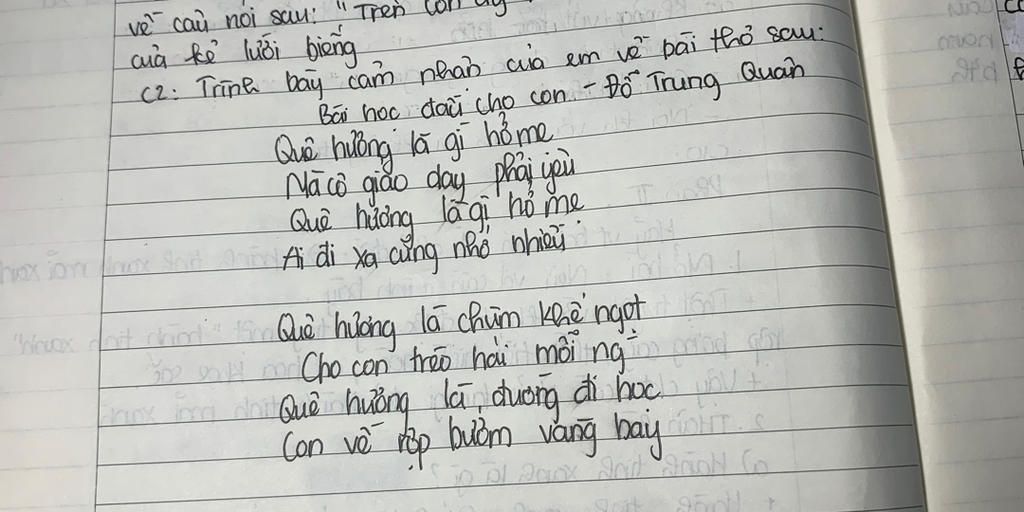 về câu nói sau: "Trên con
của kẻ lười biếng
C2: Trình bày cảm nhận của em về bài thơ sau:
Bài học đầu cho con - Đỗ Trung Quân
Quê hương là gì hở mẹ
Mà cô giáo dạy phải yêu
Quê hương là gì hở mẹ
Ai đi xa cũng nhớ nhiều
Quê hương là chùm khế ngọt
Cho con trèo hái mỗi ng`
Quê hương là đường đi học
Con về rợp bướm vàng bay